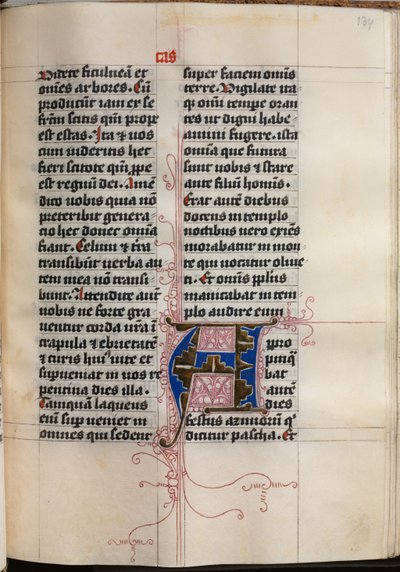 134
cas
Videte ficulneā et
om̄es arbores. Cū
producūt iam ex se
fr̄m scitis qm̄ prope
est estas. Ita et uos
cum uideritis hec
fieri scitote qm̄ ꝓpe
est regnū dei. Amē
dico uobis quia nō
preteribit genera
cio hec donec om̄ia
fiant. Celum et t̄ra
transibūt verba au
tem mea nō transi
bunt. Attendite aut̄
uobis ne forte gra
uentur corda ur̄a ī
crapula et ebrietate
et curis huiꝰ uite et
supueniat in uos re
pentina dies illa.
Tamquā laqueus
enī sup ueniet in
omnes qui sedent
super faciem om̄is
terre. Vigilate ita
qꝫ om̄i tempe oran
tes ut digni habe
amini fugere. ista
omīa que futura
sunt uobis et stare
ante filiū homīs.
Erat autē diebus
docens in templo
noctibus uero exiēs
morabatur in mon
te qui uocatur oliue
ti. Et omīs pplus
manicabat in tem
plo audire eum
A ppro
pinqꝫ
bat
autē
dies
festus azimorū qͥ
dicitur pascha. Et